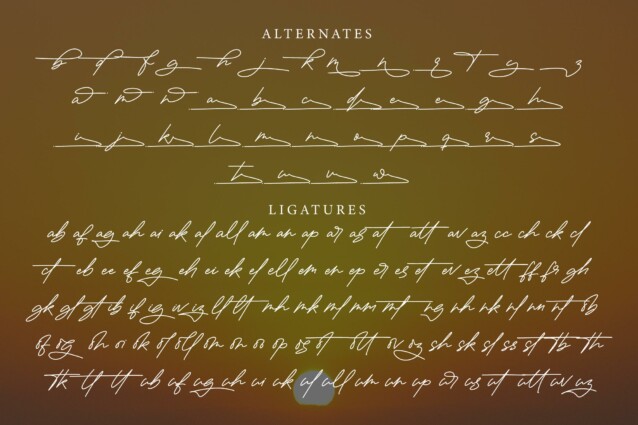 ALTERNATES
b d f g h j k m n q T y z
a m w a b c d e e g h
i j k l m n o p q r s
t u v w
LIGATURES
ab af ag ah ai ak al all am an ap ar as at att av az cc ch ck cl
ct eb ee ef eg eh ei ek el ell em en ep er es et ev ez ett ff fr gh
gk gl gt ib if ig iv iz ll lt mh mk ml mm mt ng nh nk nl nn nt ob
of og oh oi ok ol oll om on oo op os ot ott ov oz sh sk sl ss st tb th
tk tl tt ub uf ug uh ui uk ul ull um un up ur us ut utt uv uz